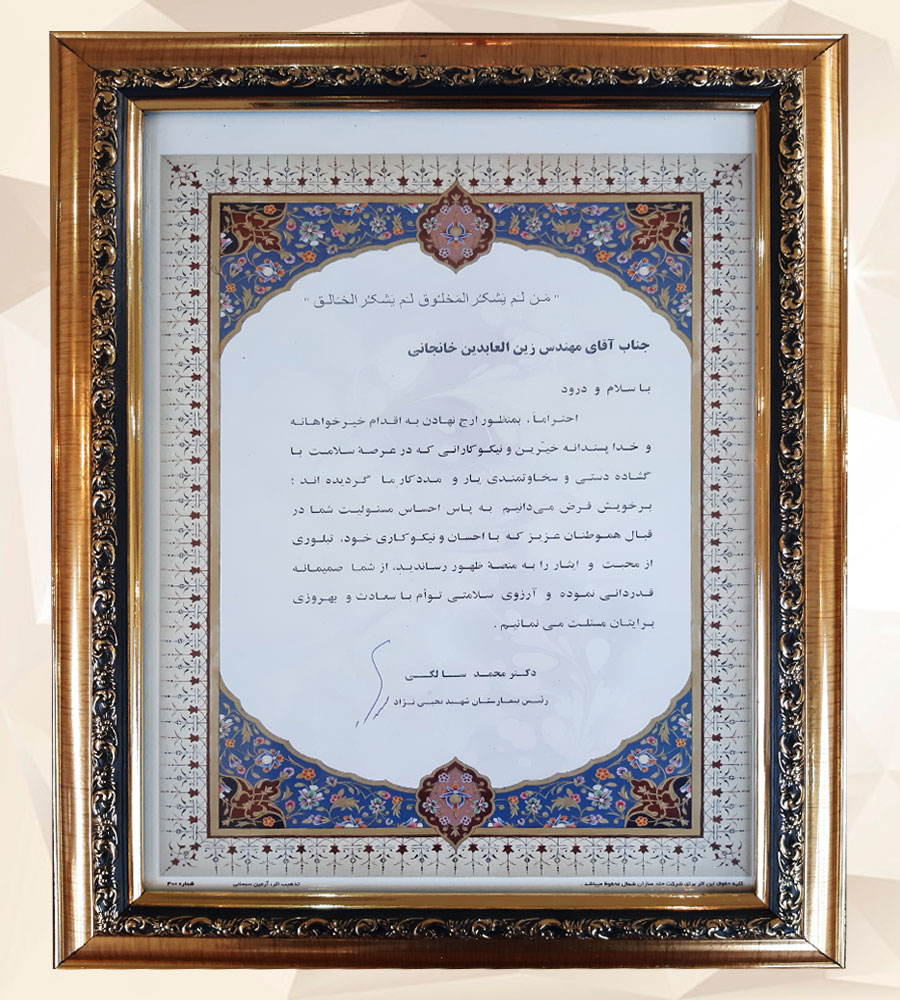 " مَن لَم یَشکُر المَخلوق لَم یَشکُر الخالِق "
جناب آقای مهندس زین العابدین خانجانی
با سلام و درود
احتراماً، بمنظور ارج نهادن به اقدام خیرخواهانه
و خدا پسندانه خیّرین و نیکوکارانی که در عرصهٔ سلامت با
گشاده دستی و سخاوتمندی یار و مددکار ما گردیده اند ؛
برخویش فرض می‌دانیم به پاس احساس مسئولیت شما در
قبال هموطنان عزیز که با احسان و نیکوکاری خود، تبلوری
از محبت و ایثار را به منصهٔ ظهور رساندید، از شما صمیمانه
قدردانی نموده و آرزوی سلامتی توأم با سعادت و بهروزی
برایتان مسئلت می نمائیم .
دکتر محمد سالکی
رئیس بیمارستان شهید یحیی نژاد
کلیه حقوق این اثر برای شرکت جلد سازان شمال محفوظ میباشد .
تذهیب اثر: آرمین سیمائی
شماره ۳۰۰